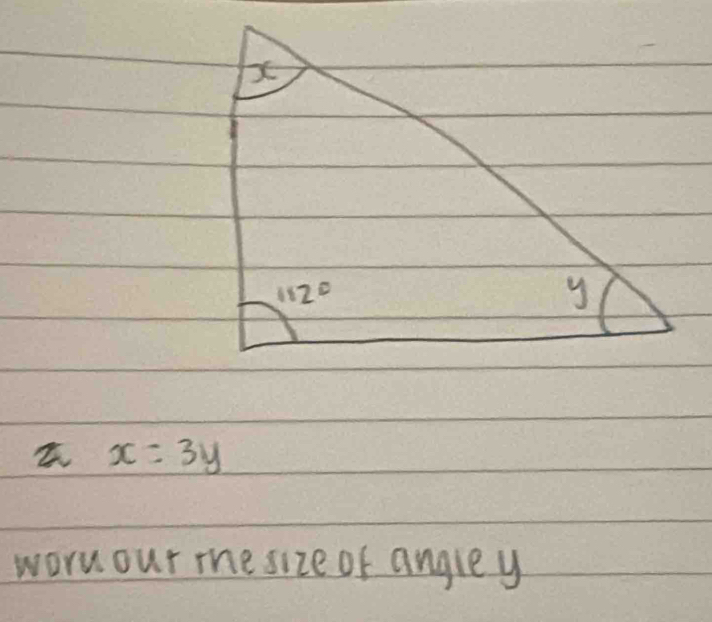 x
112°
y
x = 3y
work out the size of angle y